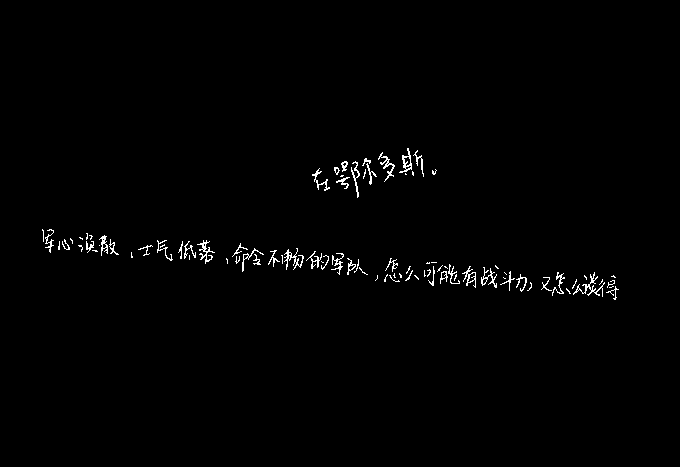 在鄂尔多斯。
军心涣散、士气低落、命令不畅的军队，怎么可能有战斗力，又怎么谈得